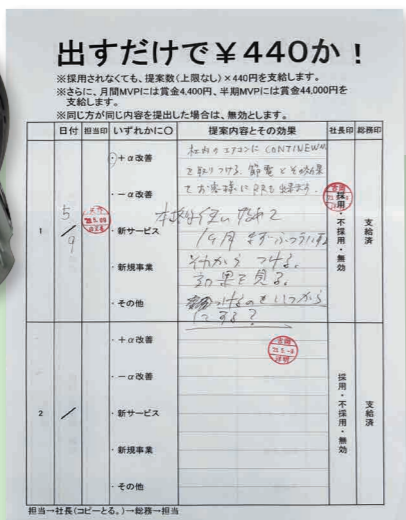 出すだけで￥440か！
※採用されなくても、提案数（上限なし）×440円を支給します。
※さらに、月間MVPには賞金4,400円、半期MVPには賞金44,000円を
支給します。
※同じ方が同じ内容を提出した場合は、無効とします。
日付 担当印 いずれかに○ 提案内容とその効果 社長印 総務印
1
5/9
・＋α改善
・－α改善
・新サービス
・新規事業
・その他
社内のエアコンに CONTINEWM
を取りつける。節電とその効果
でお客様にPRも出来ます。
1ヶ月
それから つける。
効果を見る。
いつから
にする？
採用・不採用・無効
支給済
2
／
・＋α改善
・－α改善
・新サービス
・新規事業
・その他
採用・不採用・無効
支給済
担当→社長（コピーとる。）→総務→担当